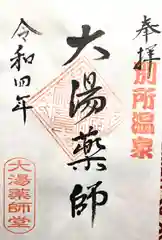 奉拝
別所温泉
大湯薬師
令和四年
大湯薬師堂